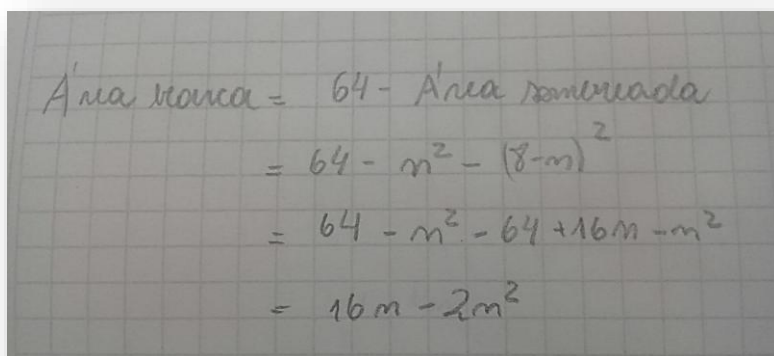 Área branca = 64 - Área sombreada
= 64 - n² - (8-n)²
= 64 - n² - 64 + 16n - n²
= 16n - 2n²